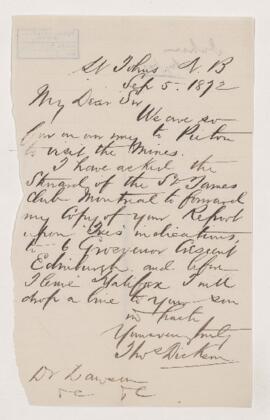 St Johns N.B
Sep 5. 1872
My Dear Sir
We are so
far on our way to Pictou
to visit the Mines.
I have asked the
Steward of the St James
club Montreal to forward
my copy of your Report
upon indications
to 6 Grosvenor Crescent
Edinburgh and before
I leave Halifax I will
drop a line to your son
in
Yours very truly
Thos
Dr Dawson